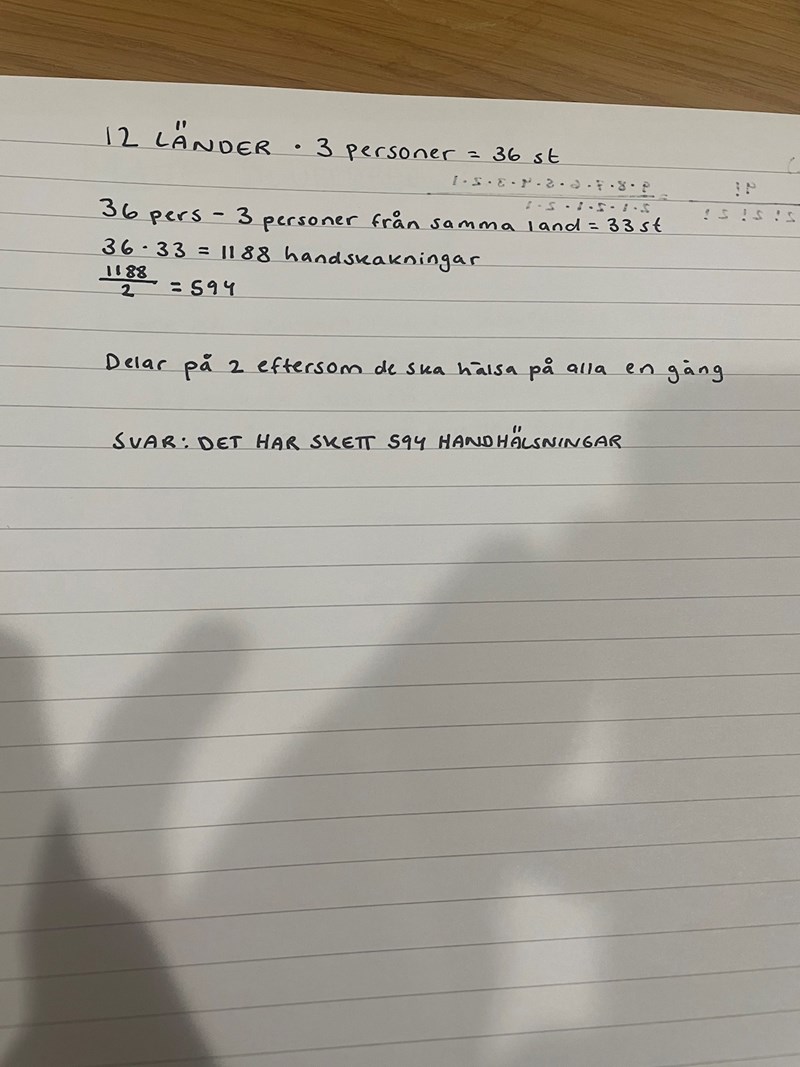 12 LÄNDER · 3 personer = 36 st
36 pers - 3 personer från samma land = 33 st
36 · 33 = 1188 handskakningar
1188
2
= 594
Delar på 2 eftersom de ska hälsa på alla en gång
SVAR: DET HAR SKETT 594 HANDHÄLSNINGAR